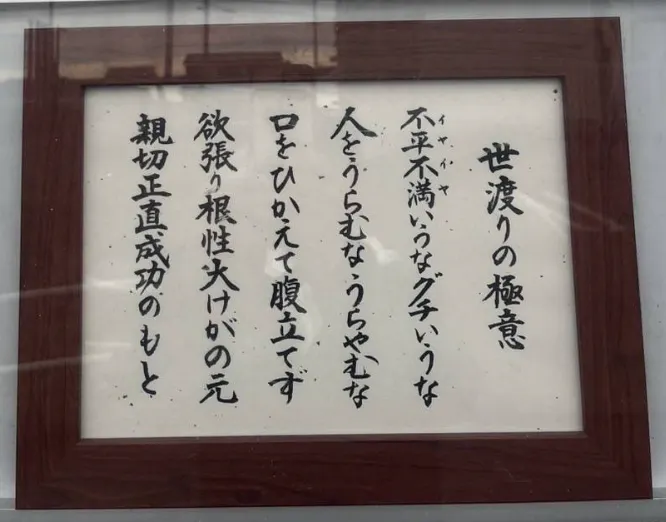 世渡りの極意
不平不満いうなグチいうな
イヤイヤ
人をうらむなうらやむな
口をひかえて腹立てず
欲張り根性大けがの元
親切正直成功のもと